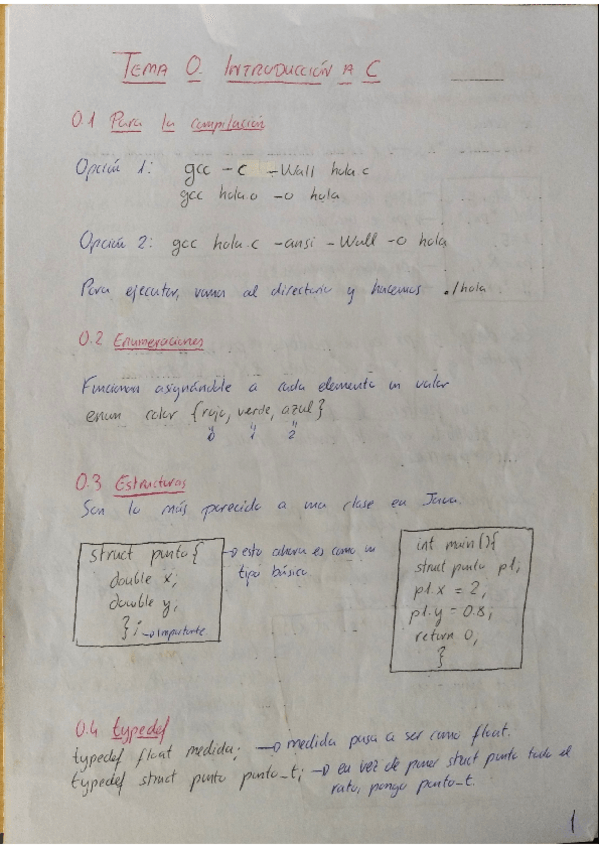 TEMA 0. INTRODUCCIÓN A C
0.1 Para la compilación
Opción 1: gcc -c -Wall hola.c
gcc hola.o -o hola
Opción 2: gcc hola.c -ansi -Wall -o hola
Para ejecutar, vamos al directorio y hacemos ./hola
0.2 Enumeraciones
Funcionan asignándole a cada elemento un valor
enum color {rojo, verde, azul}
0 1 2
0.3 Estructuras
Son lo más parecido a una clase en Java
struct punto{
double x;
double y;
}; → importante
→ esto ahora es como un
tipo básico
int main(){
struct punto p1;
p1.x = 2;
p1.y = 0.8;
return 0;
}
0.4 typedef
typedef float medida; → medida pasa a ser como float.
typedef struct punto punto_t; → en vez de poner struct punto todo el
rato, pongo punto_t.
1